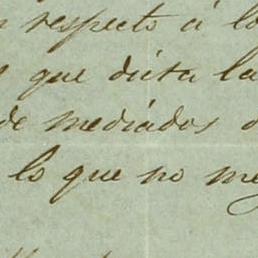 respecto á lo
que dicta la
de mediados
lo que no me